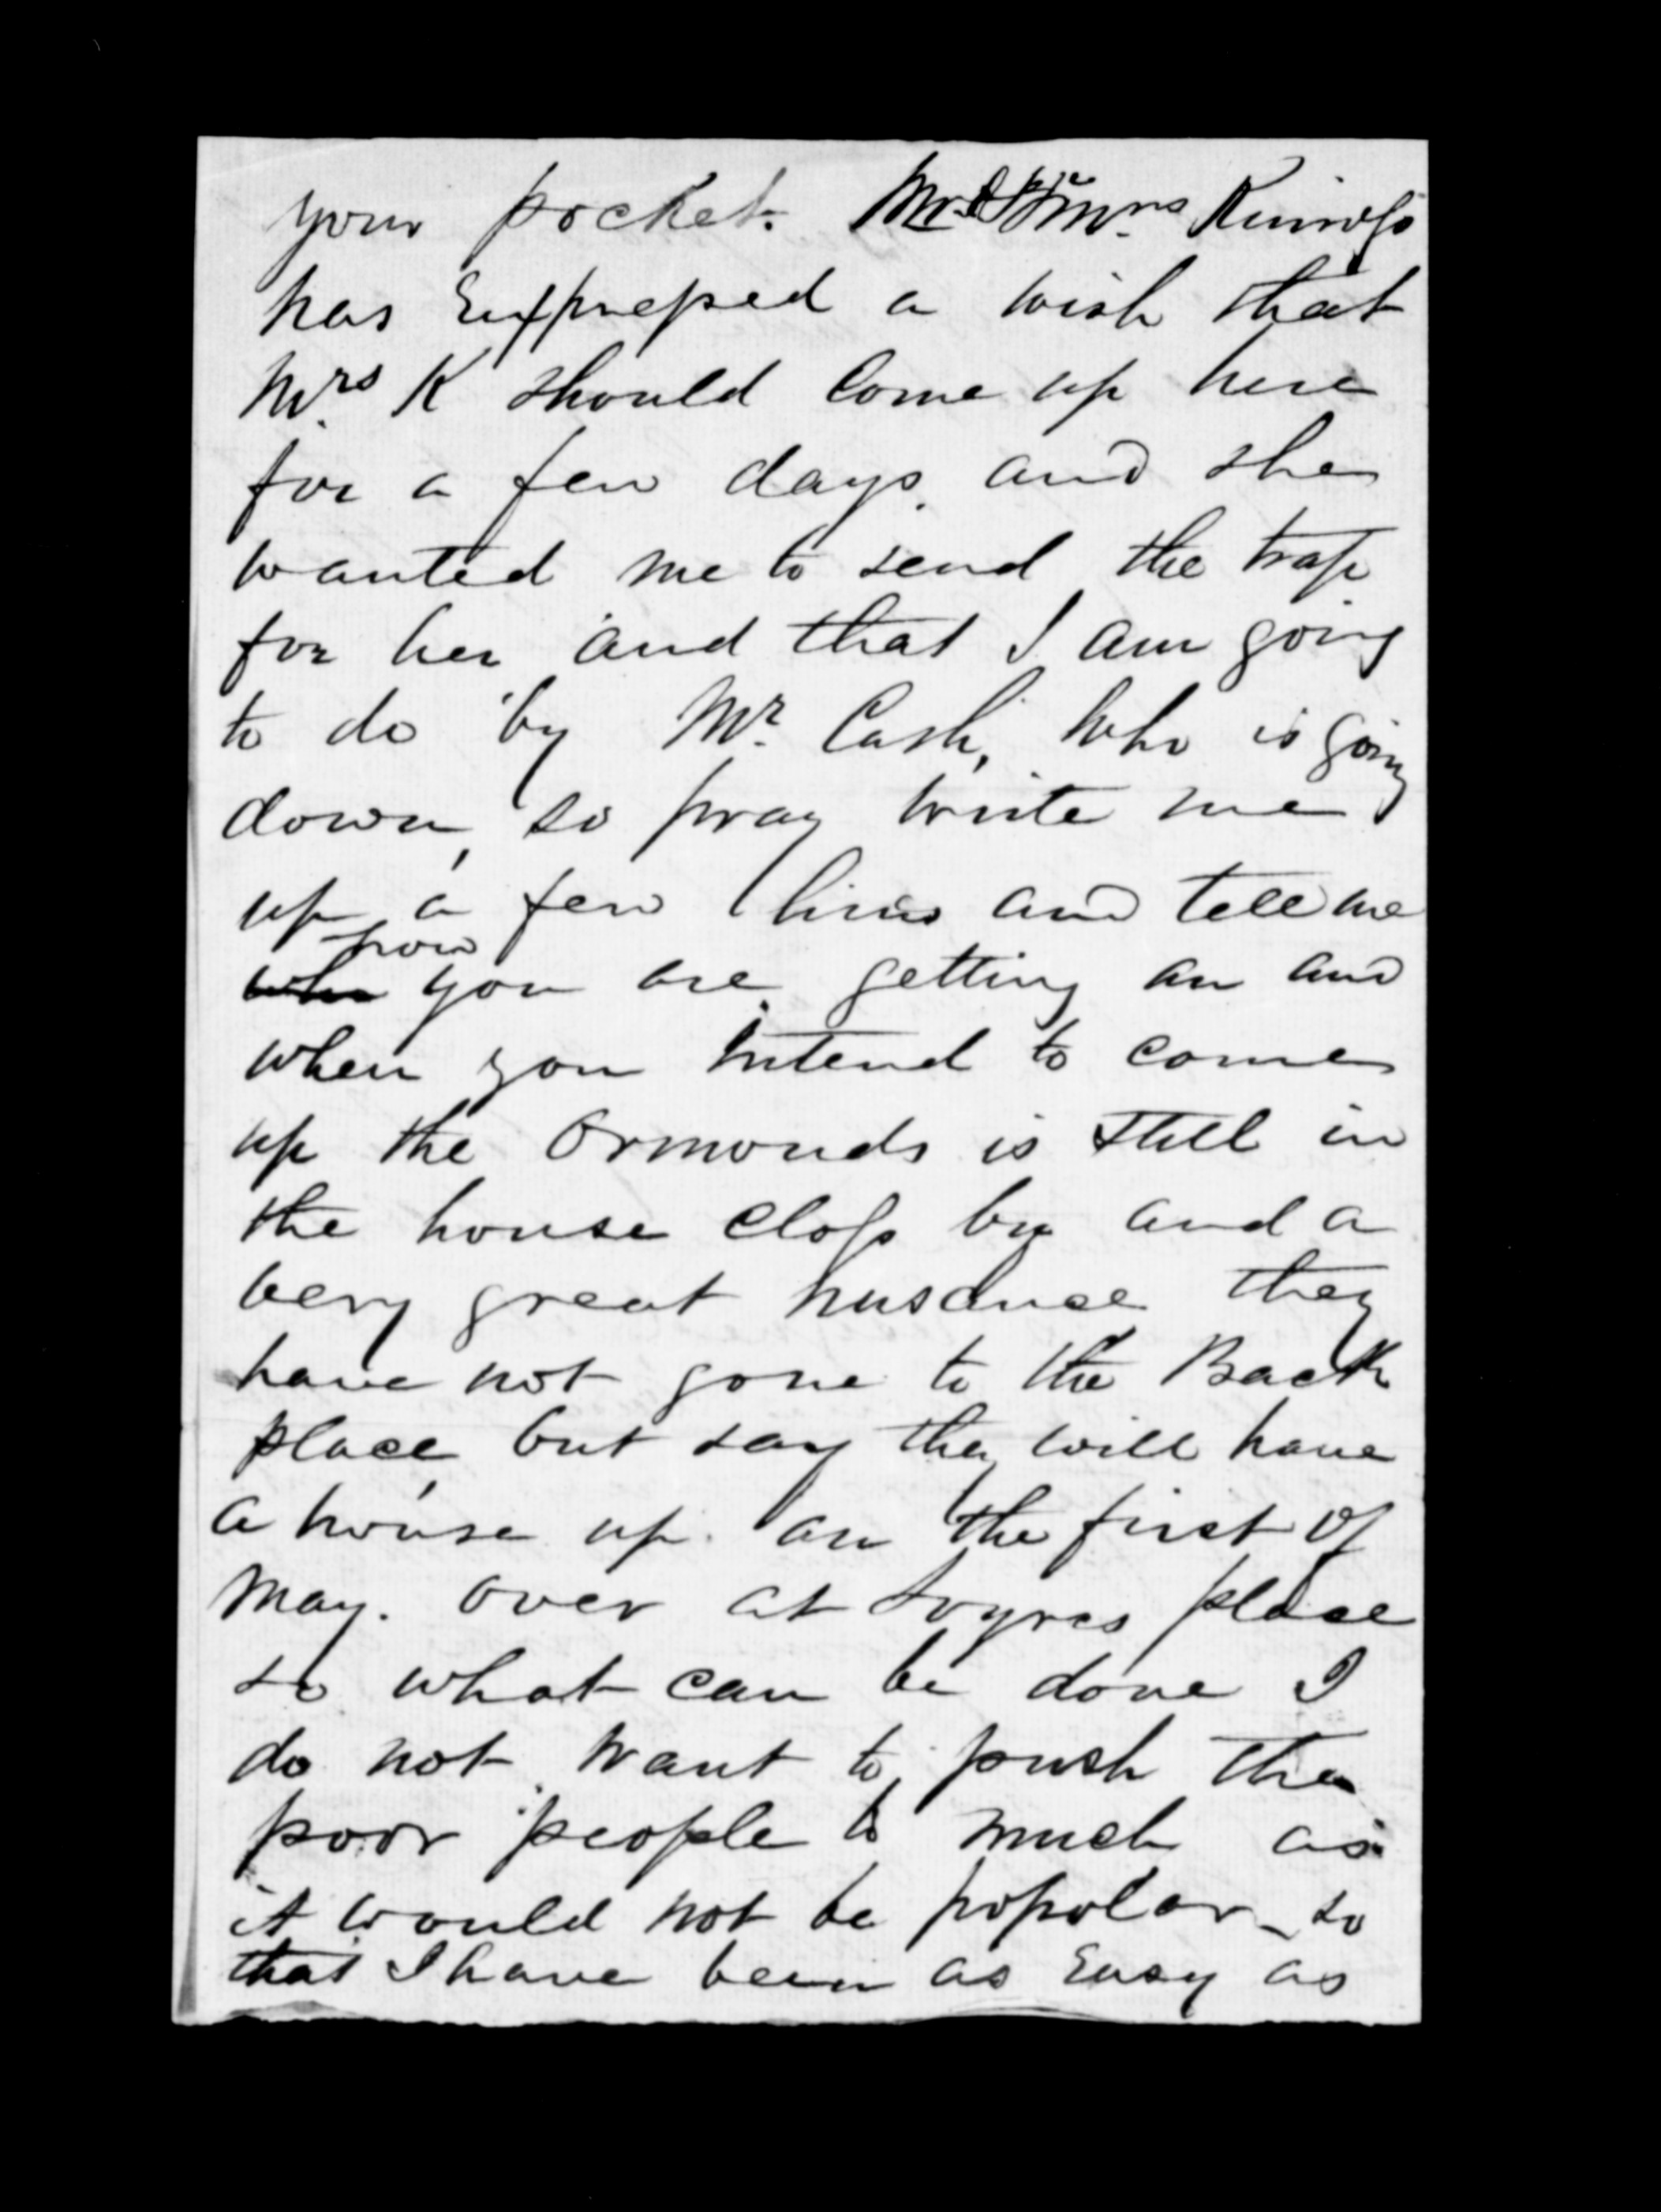 your pocket. Mrs
has Expressed a wish that
Mrs K should Come up here
for a few days. and she
wanted me to send the trap
for her and that I am going
to do by Mr. Cash, who is going
down, so pray write me
up a few lines and tell me
how you are getting an and
when you intend to come
up the Ormonds is still in
the house Closs by and a
very great nusance they
have not gone to the Back
place, but say they will have
a house up. an the first of
May. over at place
so what can be done I
do not want to push the
poor people to much as
it would not be popolar so
that I have been as Easy as